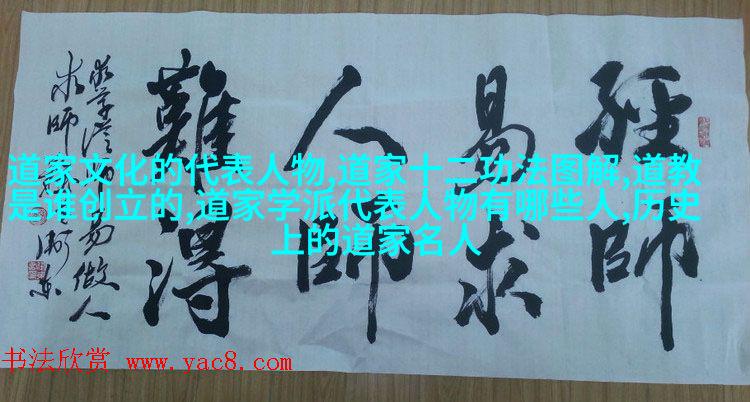 經師
易求
人師
難得
做人
求師
道家文化的代表人物,道家十二功法图解,道教
是谁创立的,道家学派代表人物有哪些人,历史
上的道家名人
书法欣赏 www.yac8.com